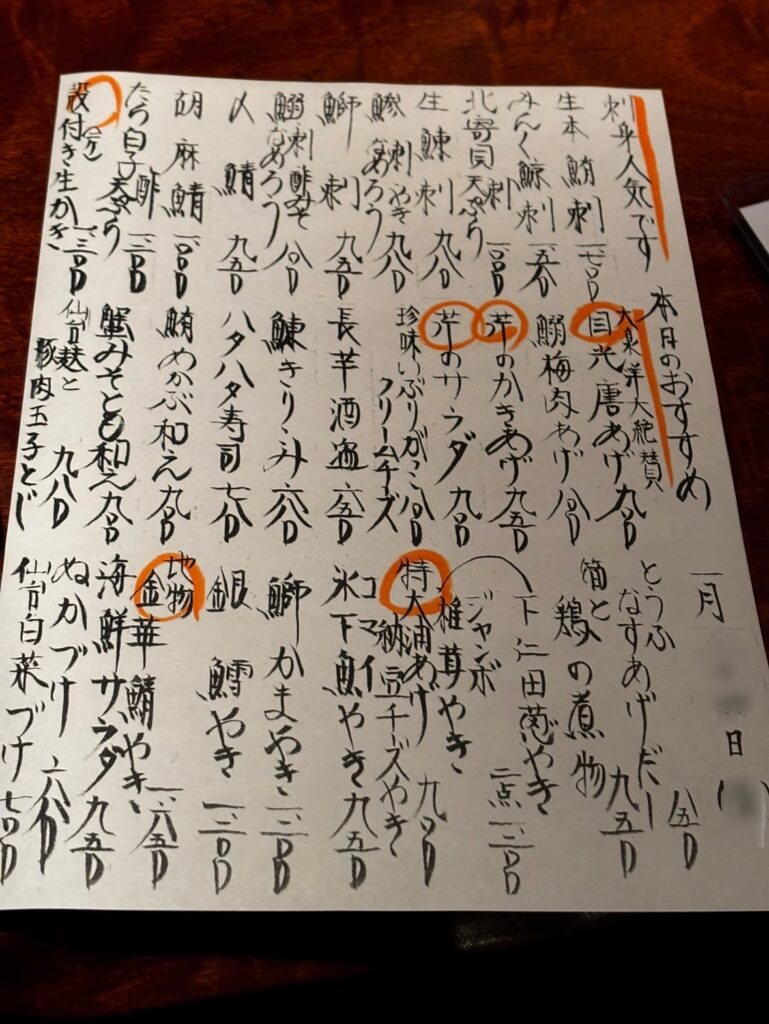 刺身人気です
生本鮪刺 一、七〇〇
みんく鯨刺 一、五〇〇
北寄貝 刺 天ぷら 一、一〇〇
生鰊刺 九八〇
鯵 刺 やき なめろう 九八〇
鰤刺 九五〇
鰯 刺 酢みそ なめろう 八〇〇
〆鯖 九五〇
胡麻鯖 一、一〇〇
たら白子 酢 天ぷら 一、三〇〇
殻付き生かき(一ヶ)
本日のおすすめ
大泉洋大絶賛
目光唐あげ 九〇〇
鰯梅肉あげ 八〇〇
芹のかきあげ 九五〇
芹のサラダ 九〇〇
珍味いぶりがっこ クリームチーズ 八〇〇
長芋酒盗 六五〇
鰊きりこみ 六八〇
ハタハタ寿司 七八〇
鮪めかぶ和え 九〇〇
蟹みそとも和え 九〇〇
仙台麸と豚肉玉子とじ 九八〇
一月 日( )
とうふなすあげだし 八五〇
筍と鶏の煮物 九五〇
下仁田葱やき
ジャンボ椎茸やき 二点 一、三〇〇
特大油あげ納豆チーズやき 九〇〇
コマイ
氷下魚やき 九五〇
鰤かまやき 一、三〇〇
銀鱈やき 一、三〇〇
地物
金華鯖やき 一、六五〇
海鮮サラダ 九五〇
ぬかづけ 六八〇
仙台白菜づけ 七〇〇